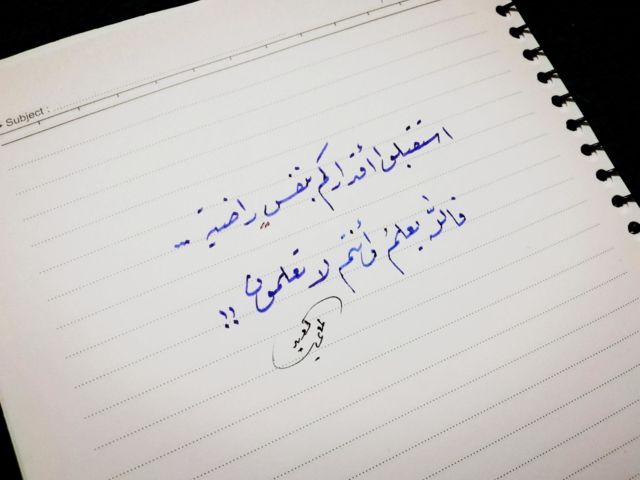 Subject :
استقبلوا أقداركم بنفسٍ راضية ..
فاللّٰه يعلمُ وأنتم لا تعلمون !!